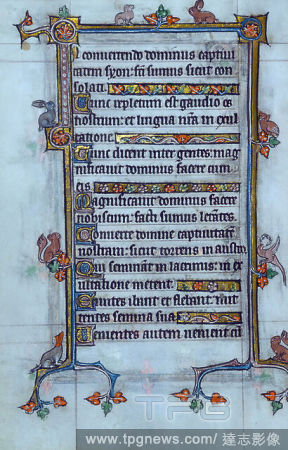 I convertendo dominus captivi
tatem syon: facti sumus sicut con
solati.
Tunc repletum est gaudio os
nostrum: et lingua nostra in exul
tatione.
Tunc dicent inter gentes: mag
nificavit dominus facere cum
eis.
Magnificavit dominus facere
nobiscum: facti sumus letantes.
Converte domine captivitatem
nostram: sicut torrens in austro.
Qui seminant in lacrimis: in ex
ultatione metent.
Euntes ibant et flebant: mit
tentes semina sua.
Venientes autem venient cum
TPG
www.tpgnews.com/ 達志影像